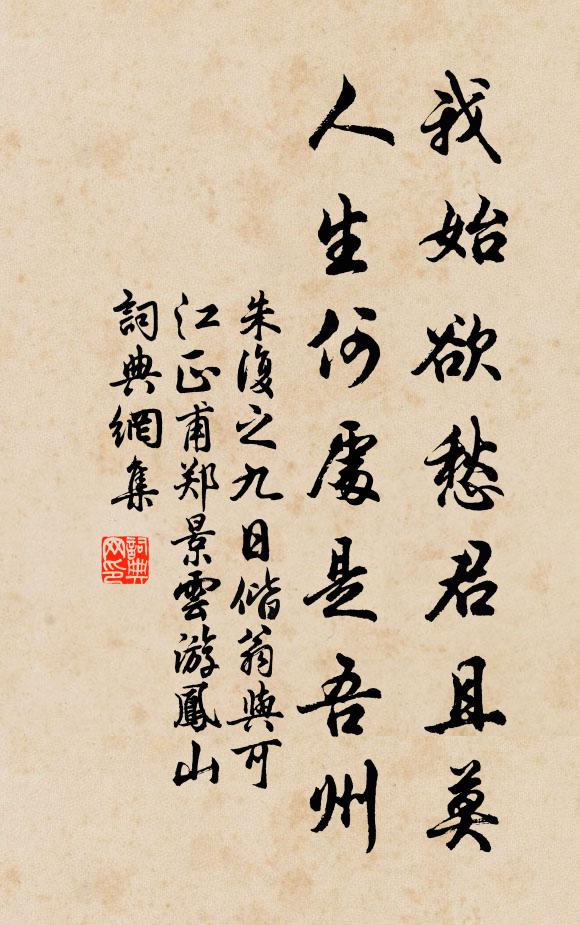 我始欲愁君且莫
人生何處是吾州
朱復之九日偕翁與可
江正甫郑景雲游鳳山
詞典網集
詞典
网印